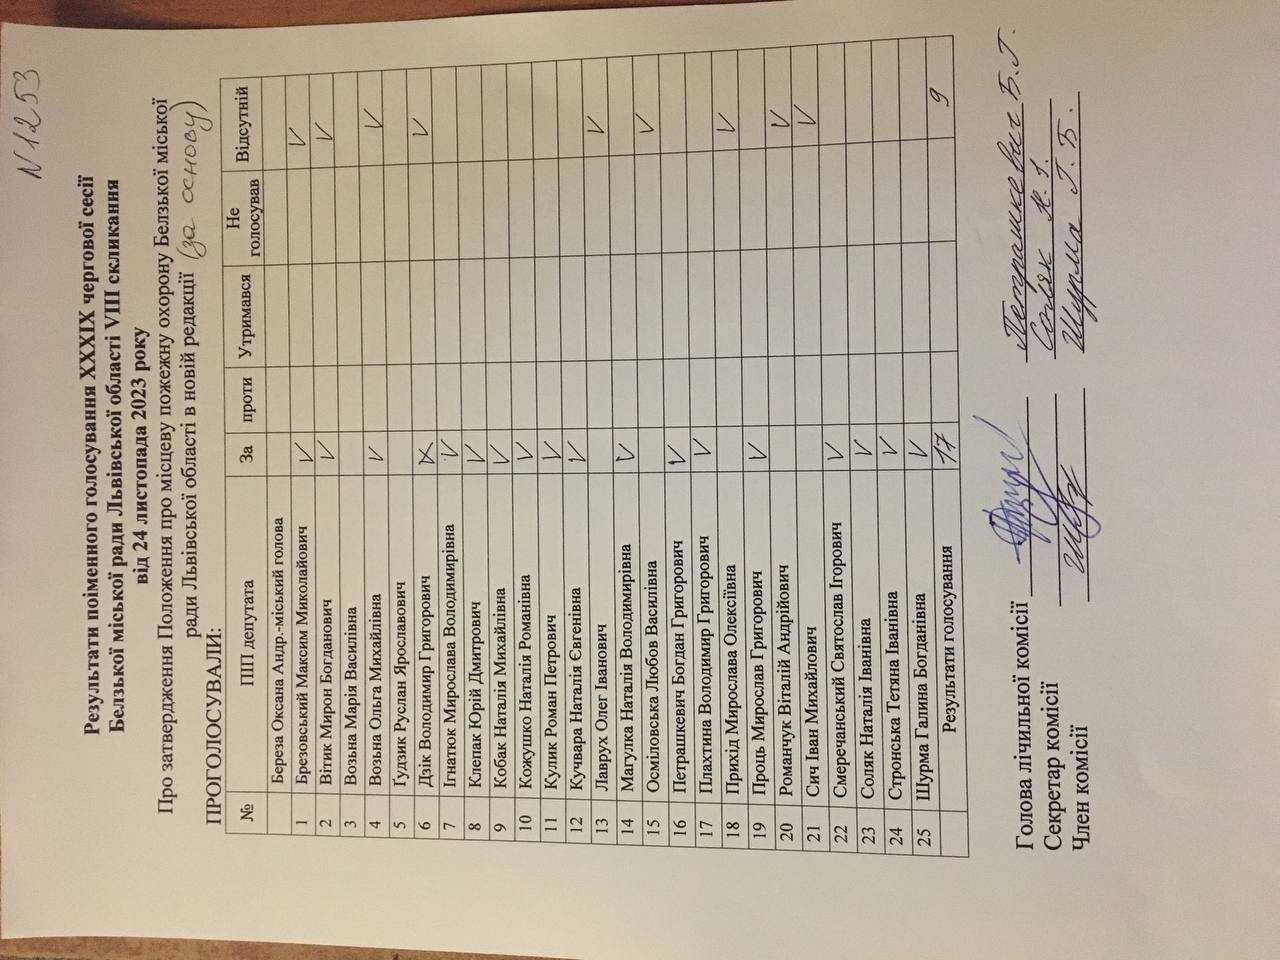 N 1253
Результати поіменного голосування XXXIX чергової сесії
Белзької міської ради Львівської області VIII скликання
від 24 листопада 2023 року
Про затвердження Положення про місцеву пожежну охорону Белзької міської
ради Львівської області в новій редакції (за основу)
ПРОГОЛОСУВАЛИ:
№ ПІП депутата За проти Утримався Не голосував Відсутній
Береза Оксана Андр.-міський голова
1 Брезовський Максим Миколайович V V
2 Вітик Мирон Богданович V V
3 Возьна Марія Василівна
4 Возьна Ольга Михайлівна V V
5 Ґудзик Руслан Ярославович
6 Дзік Володимир Григорович X V
7 Ігнатюк Мирослава Володимирівна V
8 Клепак Юрій Дмитрович V
9 Кобак Наталія Михайлівна V
10 Кожушко Наталія Романівна V
11 Кулик Роман Петрович V
12 Кучвара Наталія Євгенівна V
13 Лаврух Олег Іванович V
14 Магулка Наталія Володимирівна V
15 Осміловська Любов Василівна V
16 Петрашкевич Богдан Григорович V
17 Плахтина Володимир Григорович V
18 Прихід Мирослава Олексіївна V
19 Проць Мирослав Григорович V
20 Романчук Віталій Андрійович V
21 Сич Іван Михайлович V
22 Смеречанський Святослав Ігорович V
23 Соляк Наталія Іванівна V
24 Стронська Тетяна Іванівна V
25 Шурма Галина Богданівна V
Результати голосування 17 9
Голова лічильної комісії Петрашкевич Б.Г.
Секретар комісії Соляк Н.І.
Член комісії Шурма Г.Б.